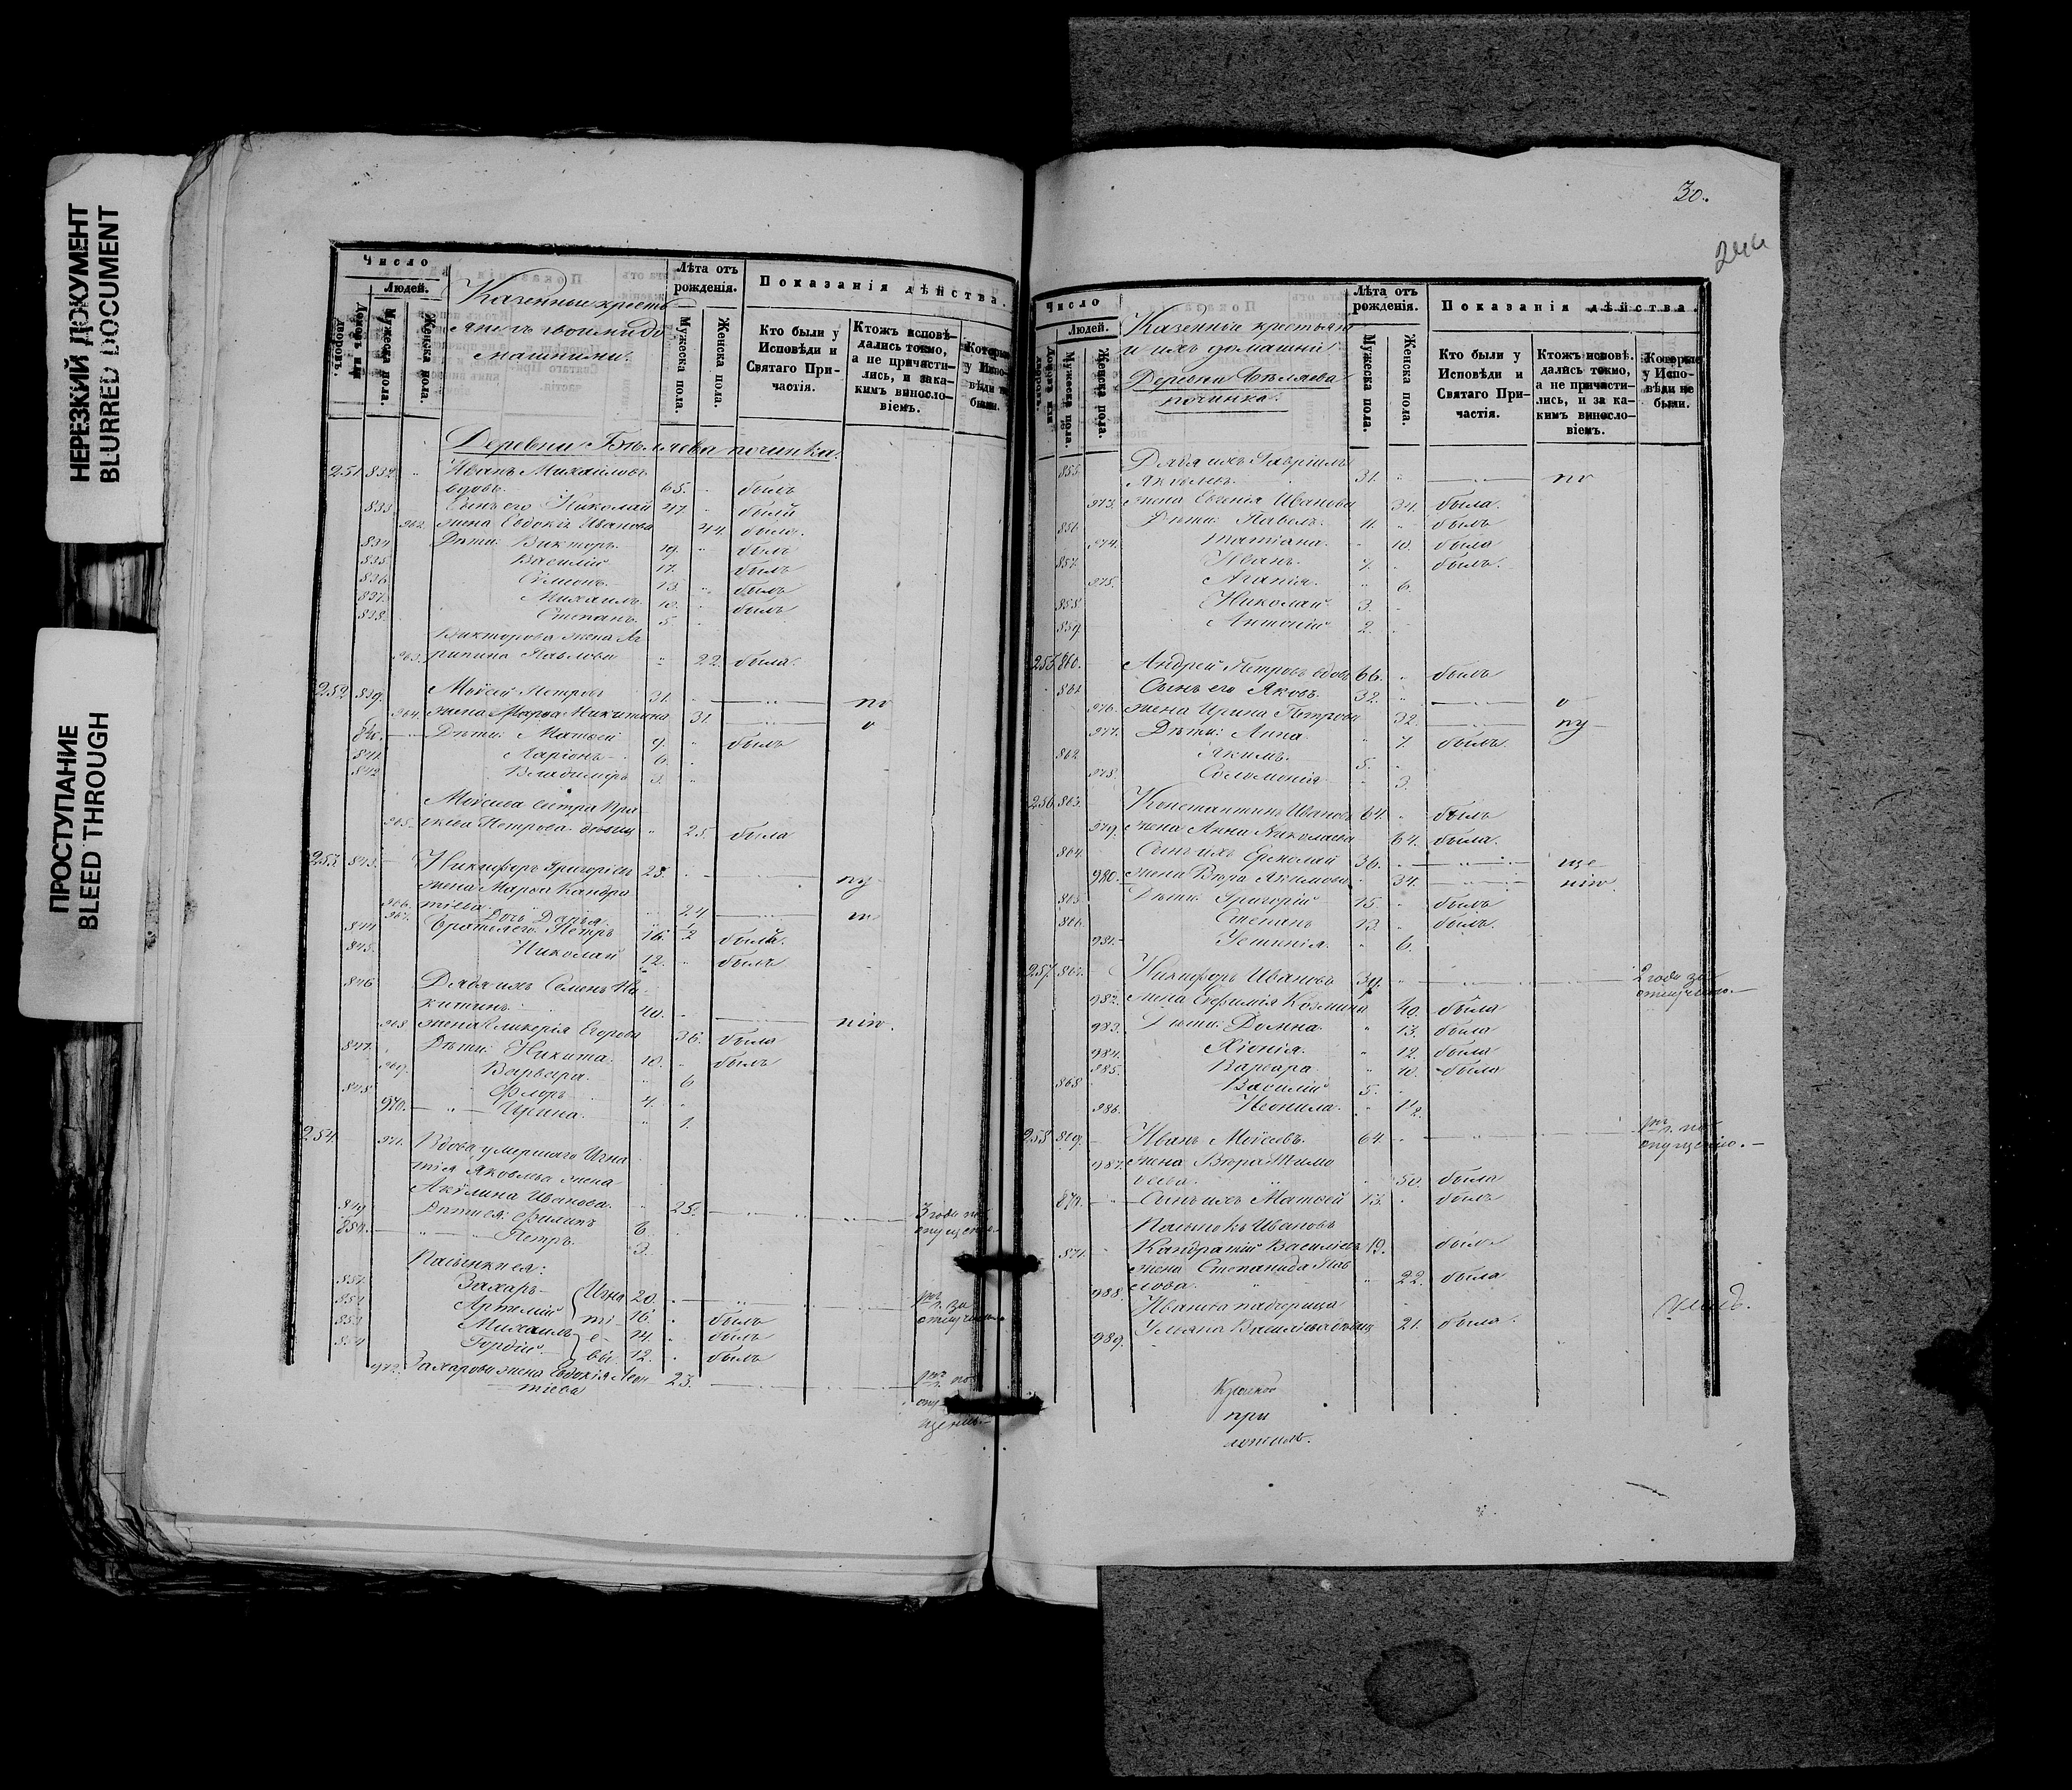 НЕРЕЗКИЙ ДОКУМЕНТ
BLURRED DOCUMENT
ПРОСТУПАНИЕ
BLEED THROUGH
Число
Людей.
Домовъ или дворовъ.
Мужеска пола.
Женска пола.
Казенные кресть
яне съ своими до
машними.
Лѣта отъ рожденія.
Мужеска пола.
Женска пола.
Показанія дѣйства.
Кто были у Исповѣди и Святаго При-
частія.
Ктожъ исповѣ-
дались токмо,
а не причасти-
лись, и зака-
кимъ винослo-
віемъ.
Которые
у Испо-
вѣди не
были.
Деревни Бѣляева починка.
251 832 Иванъ Михайловъ
вдовъ. 65. былъ
833. Сынъ его Николай 47. былъ
962. жена Евдокія Иванова 44. была.
834 Дѣти: Викторъ. 19. былъ
835 Василій 17. былъ
836 Симеонъ. 13. былъ
837. Михаилъ. 10. былъ
838. Степанъ. 5.
Викторова жена Аг
963. рипина Павлова 22. была.
252 839. Моѵсей Петровъ 31. по
964. жена Марѳа Никитина 31. о
840. Дѣти: Матвей 9. былъ
841. Ларіонъ 6.
842 Владиміръ 3.
Моѵсеева сестра Пра
965. сковья Петрова дѣвица 25. была
253 843. Никифоръ Григорьевъ 23. пу
жена Марѳа Кандра
966. тьева. 24
967. Дочь Дарья. 1/2
844 Братья его: Петръ 16. былъ.
845. Николай 12. былъ
846 Дядя ихъ Семенъ Ни
китинъ. 40. нію.
968 жена Гликерія Егорова 36. была
847. Дѣти: Никита. 10. былъ
969. Варвара. 6
848 Флоръ 4.
970. Ирина. 1.
254. 971. Вдова умершаго Игна
тія Яковлева жена
Акулина Иванова. 25. 3 года по
849 Дѣти ея: Филипъ 6. опущенію
850. Петръ. 3.
Пасынки ея:
851. Захаръ Игна 20. за
852 Артемій ті 16. былъ отлучкою
853 Михаилъ е 14. былъ
854 Гордій. вы. 12. былъ
972. Захарова жена Евдокія Леон 23. по
тіева опу
щенію.
30.
Число
Людей.
Мужеска пола.
Женска пола.
Казенные крестьяне
и ихъ домашніе
Деревни Бѣляева
починка.
Лѣта отъ рожденія.
Мужеска пола.
Женска пола.
Показанія дѣйства.
Кто были у Исповѣди и Святаго При-
частія.
Ктожъ исповѣ-
дались токмо,
а не причасти-
лись, и за ка-
кимъ винослo-
віемъ.
Которые
у Испо-
вѣди не
были.
855. Дядя ихъ Гавріилъ
Яковлевъ. 31. по
973. жена Евгенія Иванова 34. была.
856. Дѣти: Павелъ. 11. былъ
974. Татіана. 10. была
857. Иванъ. 7. былъ.
975. Агапія. 6.
858 Николай 3.
859 Антоній 2.
255 860. Андрей Петровъ вдовъ 66. былъ
861 Сынъ его Яковъ 32. о
976. жена Ирина Петрова 32. пу
977. Дѣти: Анна. 7. былъ.
862 Якимъ. 5.
978. Соломонія 3.
256 863. Константинъ Ивановъ 64. былъ
979. жена Анна Николаева 64. была.
864 Сынъ ихъ Ермолай 36. ще
980. жена Вѣра Якимова 34. нію.
865 Дѣти: Григорій 15. былъ
866. Степанъ 13. былъ.
981. Устинія. 6.
257 867. Никифоръ Ивановъ 39. 2 года за
отлучкою.
982. жена Евфимія Козмина 40. была
983. Дѣти: Домна. 13. была
984. Ксенія. 12. была
985. Варвара. 10. была
868 Василій 5.
986. Неонила. 1 1/2.
258 869. Иванъ Моѵсеевъ. 64 по
опущенію.
987. жена Вѣра Тимо
ѳеева. 50. была
870. Сынъ ихъ Матвей 13. былъ
Пасынокъ Ивановъ
871. Кандратій Васильевъ 19. былъ
жена Степанида Пав
988. лова. 22. была
Иванова падчерица
989. Ульяна Васильева дѣвица 21. была.
при